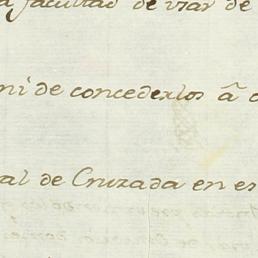 a facultad de usar de
ni de concederlos â
al de Cruzada en es